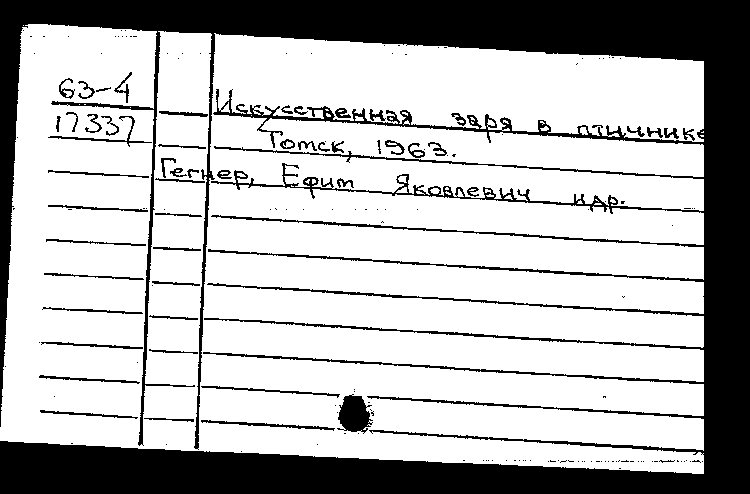 63-4
17337
Искусственная заря в птичнике
Томск, 1963.
Гегнер, Ефим Яковлевич и др.